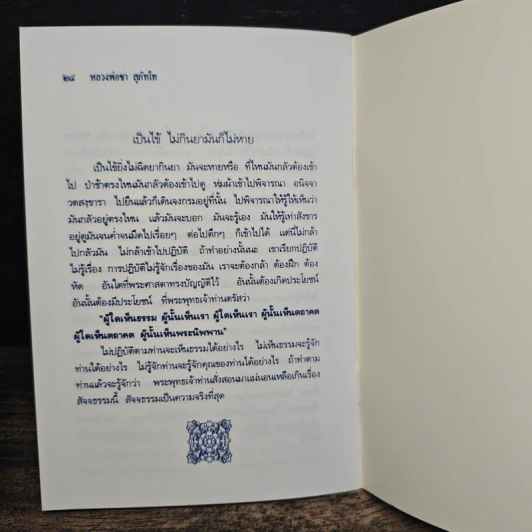 ๒๘ หลวงพ่อชา สุภัทโท
เป็นไข้ ไม่กินยามันก็ไม่หาย
เป็นไข้ยิ่งไม่ฉีดยากินยา มันจะหายหรือ ที่ไหนมันกลัวต้องเข้า
ไป ป่าช้าตรงไหนมันกลัวต้องเข้าไปดู ห่มผ้าเข้าไปพิจารณา อนิจจา
วตสงฺขารา ไปยืนแล้วก็เดินจงกรมอยู่ที่นั้น ไปพิจารณาให้รู้ให้เห็นว่า
มันกลัวอยู่ตรงไหน แล้วมันจะบอก มันจะรู้เอง มันให้รู้เท่าสังขาร
อยู่ดูมันจนค่ำจนมืดไปเรื่อยๆ ต่อไปดึกๆ ก็เข้าไปได้ แต่นี่ไม่กล้า
ไปกลัวมัน ไม่กล้าเข้าไปปฏิบัติ ถ้าทำอย่างนั้นนะ เขาเรียกปฏิบัติ
ไม่รู้เรื่อง การปฏิบัติไม่รู้จักเรื่องของมัน เราจะต้องกล้า ต้องฝึก ต้อง
หัด อันใดที่พระศาสดาทรงบัญญัติไว้ อันนั้นต้องเกิดประโยชน์
อันนั้นต้องมีประโยชน์ ที่พระพุทธเจ้าท่านตรัสว่า
"ผู้ใดเห็นธรรม ผู้นั้นเห็นเรา ผู้ใดเห็นเรา ผู้นั้นเห็นตถาคต
ผู้ใดเห็นตถาคต ผู้นั้นเห็นพระนิพพาน"
ไม่ปฏิบัติตามท่านจะเห็นธรรมได้อย่างไร ไม่เห็นธรรมจะรู้จัก
ท่านได้อย่างไร ไม่รู้จักท่านจะรู้จักคุณของท่านได้อย่างไร ถ้าทำตาม
ท่านแล้วจะรู้จักว่า พระพุทธเจ้าท่านสั่งสอนมาแน่นอนเหลือเกินเรื่อง
สัจจธรรมนี้ สัจธรรมเป็นความจริงที่สุด